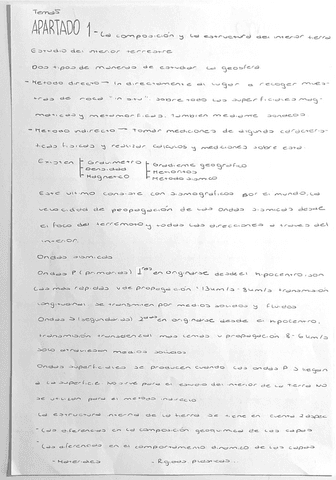 Tema 5
APARTADO 1 - La composición y la estructura del interior terra
Estudio del interior terrestre
Dos tipos de maneras de estudiar la geosfera
- Metodo directo → ir directamente al lugar a recoger mues-
tras de roca "in situ" sobre todo las superficiales mag-
maticas y metamorficas. Tambien mediante sondeos
- Metodo indirecto → tomar mediciones de algunas caracteris-
ticas fisicas y realizar calculos y mediciones sobre esta.
Existen Gravimetro Gradiente geografico
Densidad Meteoritos
Magnetico Metodo sismico
Este ultimo consiste con sismografos por el mundo, la
velocidad de propagación de las ondas sismicas desde
el foco del terremoto y todas las direcciones a traves del
interior.
Ondas sismicas
Ondas P (primarias) en originarse desde el hipocentro, son
las mas rapidas v de propagación transmisión
longitudinal se transmiten por medios solidos y fluidos
Ondas S (segundarias) en originarse desde el hipocentro,
transmisión mas lentas v propagación
solo atraviesan medios solidos
Ondas superficiales se producen cuando las ondas P S llegan
a la superficie no sirve para el estudio del interior de la tierra no
se utilizan para el metodo indirecto
La estructura interna de la tierra se tiene en cuenta 2 aspec
"Las diferencias en la composición geoquimica de las capas
"Las diferencias en el comportamiento dinamico de las capas
- Materiales - Rigidas plasticas...